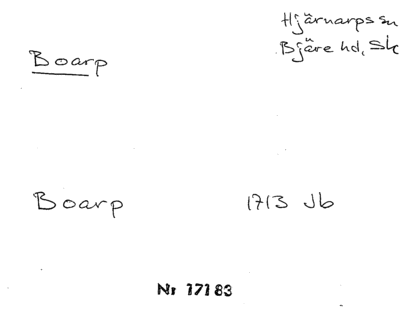 Boarp
Hjärnarps sn
Bjäre hd, Sk
Boarp 1713 Jb
Nr 17183